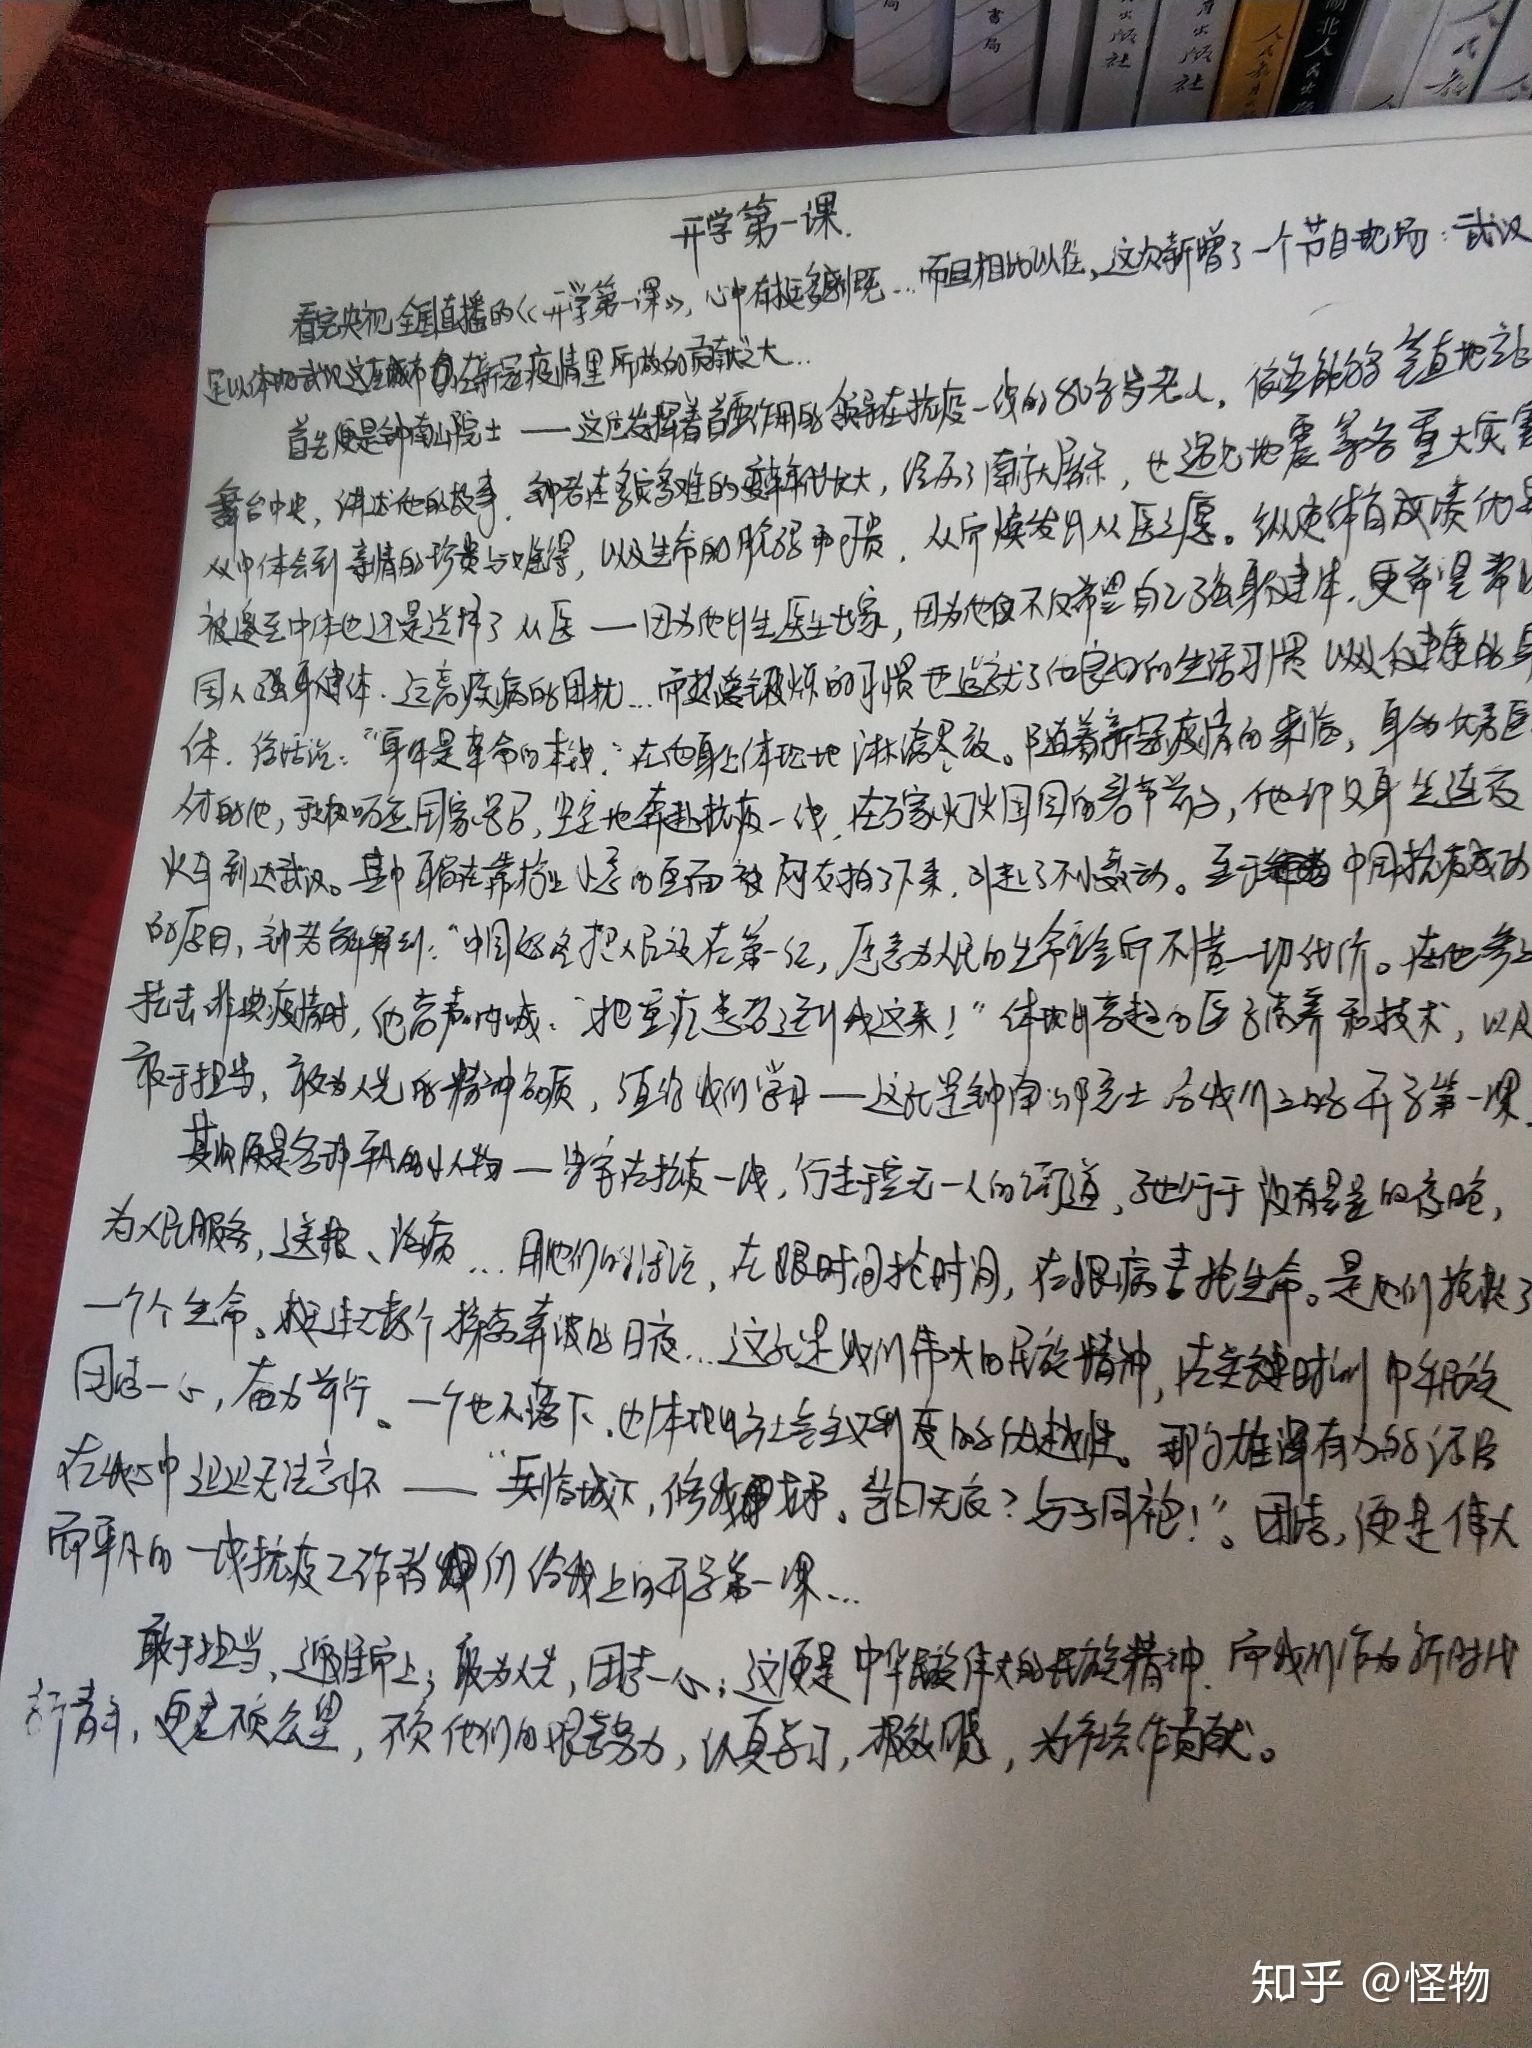 书局
出版社
育出版社
人民教育出
湖北人民出版
人民
人民教
开学第一课.
看完央视全国直播的《开学第一课》，心中有挺多感慨…而且相比以往、这次新增了一个节目现场：武汉
足以体现武汉这座城市在新冠疫情里所做的贡献之大…
首先便是钟南山院士——这位发挥着首要作用的领导在抗疫一线的80多岁老人，依然能够笔直地站
舞台中央，讲述他的故事.钟老在多灾多难的年代长大，经历了南京大屠杀，也遇见地震等各重大灾害
从中体会到亲情的珍贵与难得，以及生命的脆弱可贵.从而焕发出从医之愿。纵使体育成绩优异
被邀至中体也还是选择了从医——因为他出生医生世家，因为他不仅希望自己强身健体.更希望帮
国人强身健体.远离疾病的困扰…而热爱锻炼的习惯也造就了他良好的生活习惯以及健康的身
体.俗话说："身体是革命的本钱."在他身上体现地淋漓尽致。随着新冠疫情的来临，身为优秀医
的他，积极响应国家号召，坚定地奔赴抗疫一线，在万家灯火团圆的春节前夕，他却只身连夜
火车到达武汉。其中有幅在靠椅上小憩的画面被网友拍了下来.引起了不小轰动。至于中国抗疫成功
的原因，钟老解释到："中国始终把人民放在第一位，愿意为人民的生命安全而不惜一切代价。在他参与
抗击非典疫情时，他高声呐喊："把重症患者送到我这来！"体现出高超的医学素养和技术，以及
敢于担当，敢为人先的精神品质，值得我们学习——这就是钟南山院士给我们上的开学第一课.
其次便是各种平凡的小人物——坚守在抗疫一线，行走于空无一人的街道，行于没有星星的夜晚，
为人民服务，送粮、治病…用他们的话说，在跟时间抢时间，在跟病毒抢生命。是他们拯救了
一个个生命。挺过无数个操劳奔波的日夜…这就是我们伟大的民族精神，在关键时刻中华民族
团结一心，奋力前行、一个也不落下.也体现出社会主义制度的优越性。那句雄浑有力的话语
在我心中迟迟无法忘怀——"兵临城下，修我戈矛。岂曰无衣？与子同袍！"。团结，便是伟大
而平凡的一线抗疫工作者们给我上的开学第一课…
敢于担当，迎难而上；敢为人先，团结一心；这便是中华民族伟大的民族精神.而我们作为新时代
新青年，更是不负众望，不负他们的艰苦努力，认真学习，报效国，为社会作贡献。
知乎 @怪物